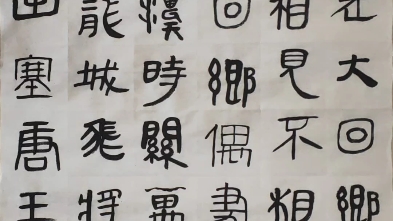 老大回鄉
相見不相
回鄉偶書
漢時關萬
龍城飛將
塞唐王